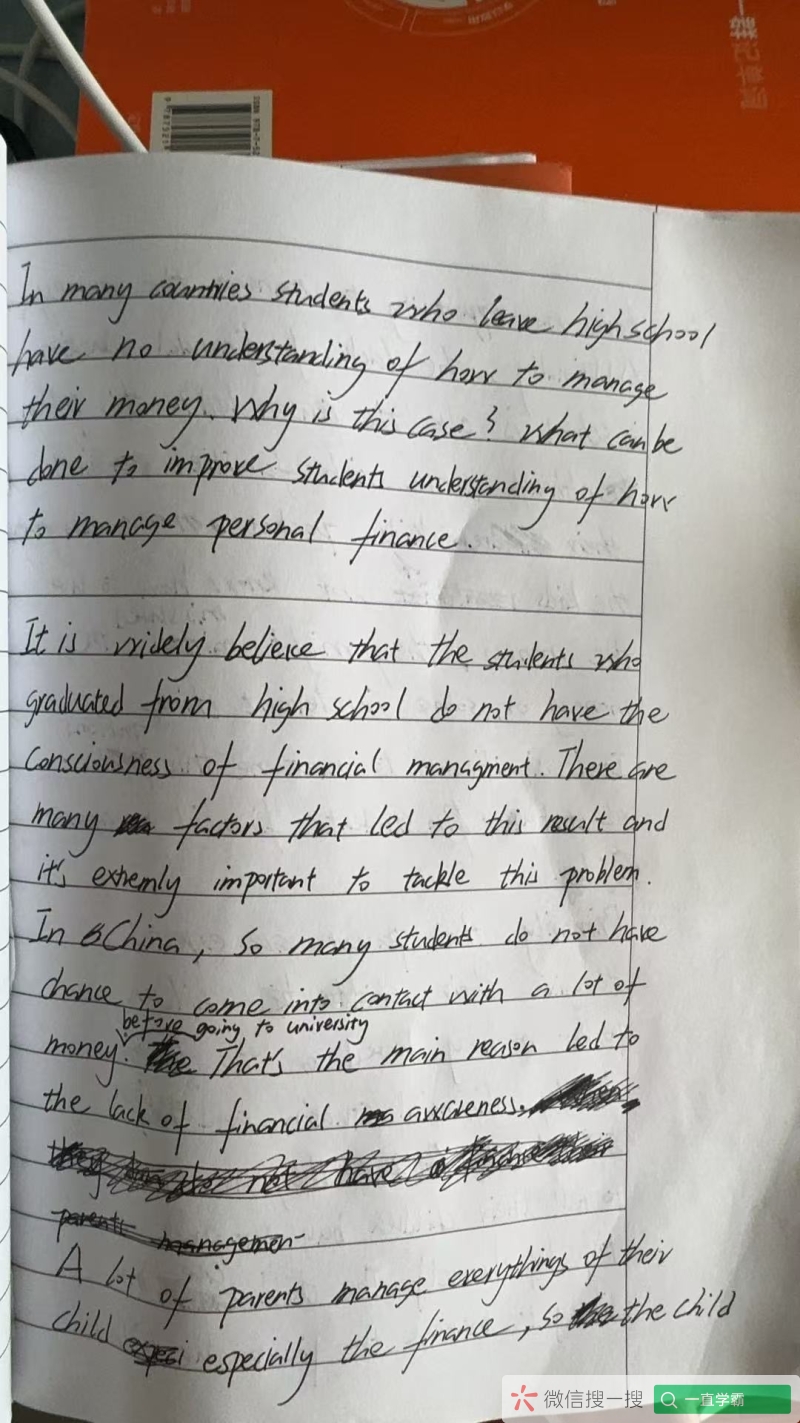 In many countries students who leave high school
have no understanding of how to manage
their money. Why is this case? What can be
done to improve students understanding of how
to manage personal finance.
It is widely believe that the students who
graduated from high school do not have the
consciousness of financial managment. There are
many factors that led to this result and
it's extremly important to tackle this problem.
In China, so many students do not have
chance to come into contact with a lot of
before going to university
money. That's the main reason led to
the lack of financial awareness.
A lot of parents manage everythings of their
child especially the finance, so the child
微信搜一搜
一直学霸